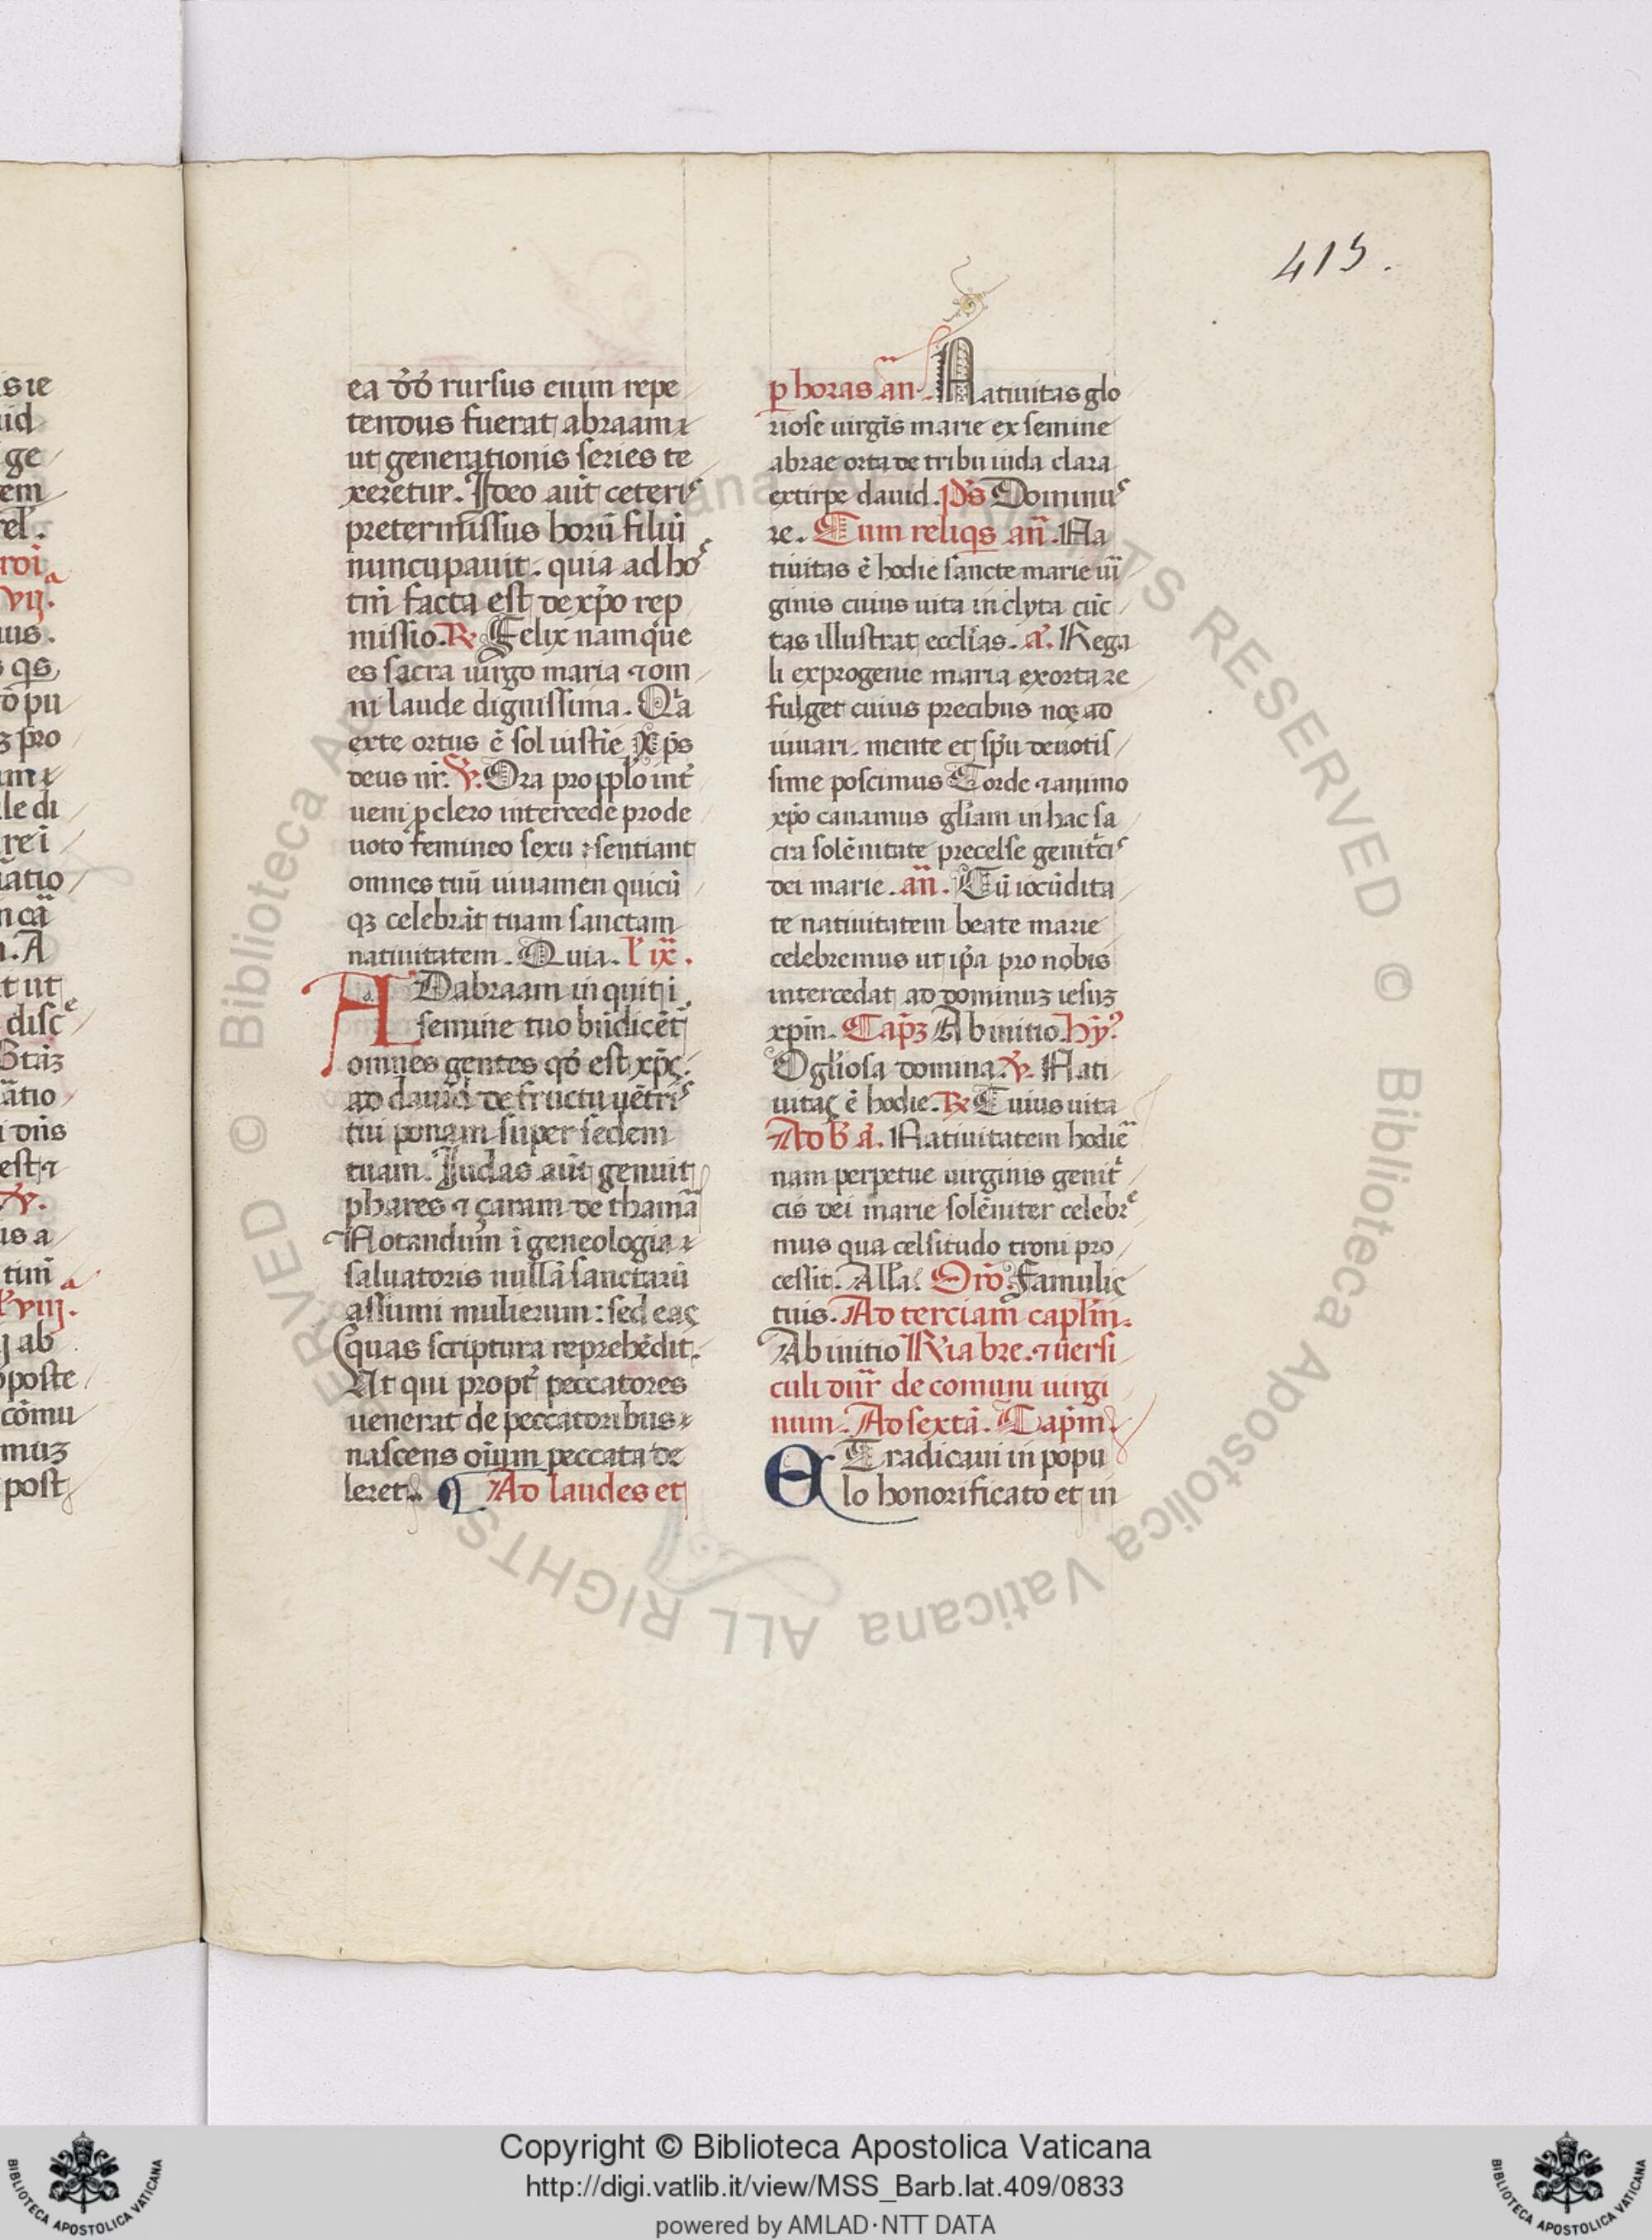 415.
ea dō rursus enim repe
tendus fuerat abraam
ut generationis series te
xeretur. Ideo aūt ceteris
pretermissius horū filiū
nuncupauit. quia ad hos
tm̄ facta est de xp̄o rep
missio. R Felix namq̄ue
es sacra uirgo maria ⁊ om
ni laude dignissima. Qr̄a
exte ortus ē sol iustīe Xp̄s
deus nr̄. V. Ora pro pplo int̄
ueni p clero intercede pro de
uoto femineo sexu : sentiant
omnes tuū iuuamen quicū
qꝫ celebrāt tuam sanctam
natiuitatem. Quia. l' ix.
ADabraam inquit i
semine tuo bn̄dicēt̄
omnes gentes qd̄ est xp̄ς.
ad dauid de fructu uētris
tui ponam super sedem
tuam. Judas aūt genuit
phares ⁊ çaram de thamā
Notandum ī geneologia
saluatoris nullā sanctarū
assumi mulierum : sed eaς
quas scriptura reprehēdit.
Ut qui propt̄ peccatores
uenerat de peccatoribus
nascens oīum peccata de
leret. Ad laudes et
p horas an. Natiuitas glo
riose uirgīs marie ex semine
abrae orta de tribu iuda clara
extirpe dauid. p̄s Dominus
re. Cum reliqs an̄. Na
tiuitas ē hodie sancte marie uī
ginis cuius uita inclyta cūc
tas illustrat eccl'ias. a. Rega
li exprogenie maria exorta re
fulget cuius precibus noς ad
iuuari. mente et sp̄u deuotis
sime poscimus Corde ⁊ animo
xp̄o canamus gl'iam in hac sa
cra solēnitate precelse genit̄cis
dei marie. an̄. Cū iocūdita
te natiuitatem beate marie
celebremus ut ip̄a pro nobis
intercedat ad dominuꝫ iesuꝫ
xpm̄. Cap̄ꝫ Ab initio. hȳ?
O gl'iosa domina. V. Nati
uitaς ē hodie. R Cuius uita
Ad b' a. Natiuitatem hodiē
nam perpetue uirginis genit̄
cis dei marie solēniter celebre
mus qua celsitudo troni pro
cessit. All'a. Or̄o Famulis
tuis. Ad terciam capl'm.
Ab initio R'ia bre. ⁊ uersi
culi dn̄r de comuni uirgi
num. Ad sextā. Cap̄m.
ET radicaui in popu
lo honorificato et in
sie
uid
ge
em
rel'.
roī
vij.
uus.
qs
pu
ꝫ pro
am
le di
re ī
natio
n cā
. A
t ut
disce
ātio
dn̄s
est ⁊
V.
us a
tim̄
l' viij.
ab
poste
cōmu
muꝫ
post
© Biblioteca Apostolica Vaticana ALL RIGHTS RESERVED © Biblioteca Apostolica Vaticana ALL RIGHTS RESERVED
Copyright © Biblioteca Apostolica Vaticana
http://digi.vatlib.it/view/MSS_Barb.lat.409/0833
powered by AMLAD·NTT DATA
BIBLIOTECA APOSTOLICA VATICANA
BIBLIOTECA APOSTOLICA VATICANA